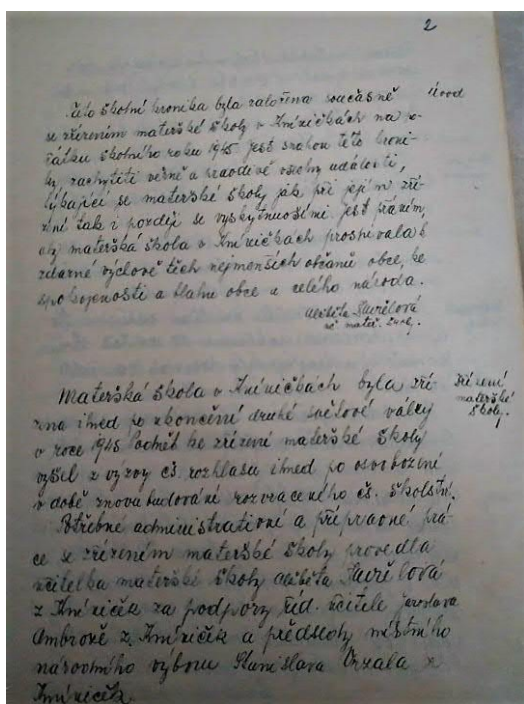 2
Úvod
Tato školní kronika byla založena současně
se zřízením mateřské školy v Kníničkách na po-
čátku školního roku 1945 jest snahou této kroni-
ky zachytiti věrně a pravdivě všechny události,
týkající se mateřské školy jak při jejím zří-
zení tak i později se vyskytnuvšími. Jest přáním,
aby mateřská škola v Kníničkách prospívala k
zdárné výchově těch nejmenších občanů obce, ke
spokojenosti a blahu obce a celého národa.
Alžběta
uč. mateř. školy.
Zřízení
mateřské
školy.
Mateřská škola v Kníničkách byla zří-
zena ihned po skončení druhé světové války
v roce 1945 Podnět ke zřízení mateřské školy
vyšel z výzvy čs. rozhlasu ihned po osvobození
v době znovubudování rozvraceného čs. školství.
Potřebné administrativní a přípravné prá-
ce se zřízením mateřské školy provedla
učitelka mateřské školy Alžběta
z Kníniček za podpory říd. učitele Jaroslava
Ambrože z Kníniček a předsedy místního
národního výboru Stanislava Vrzala z
Kníniček